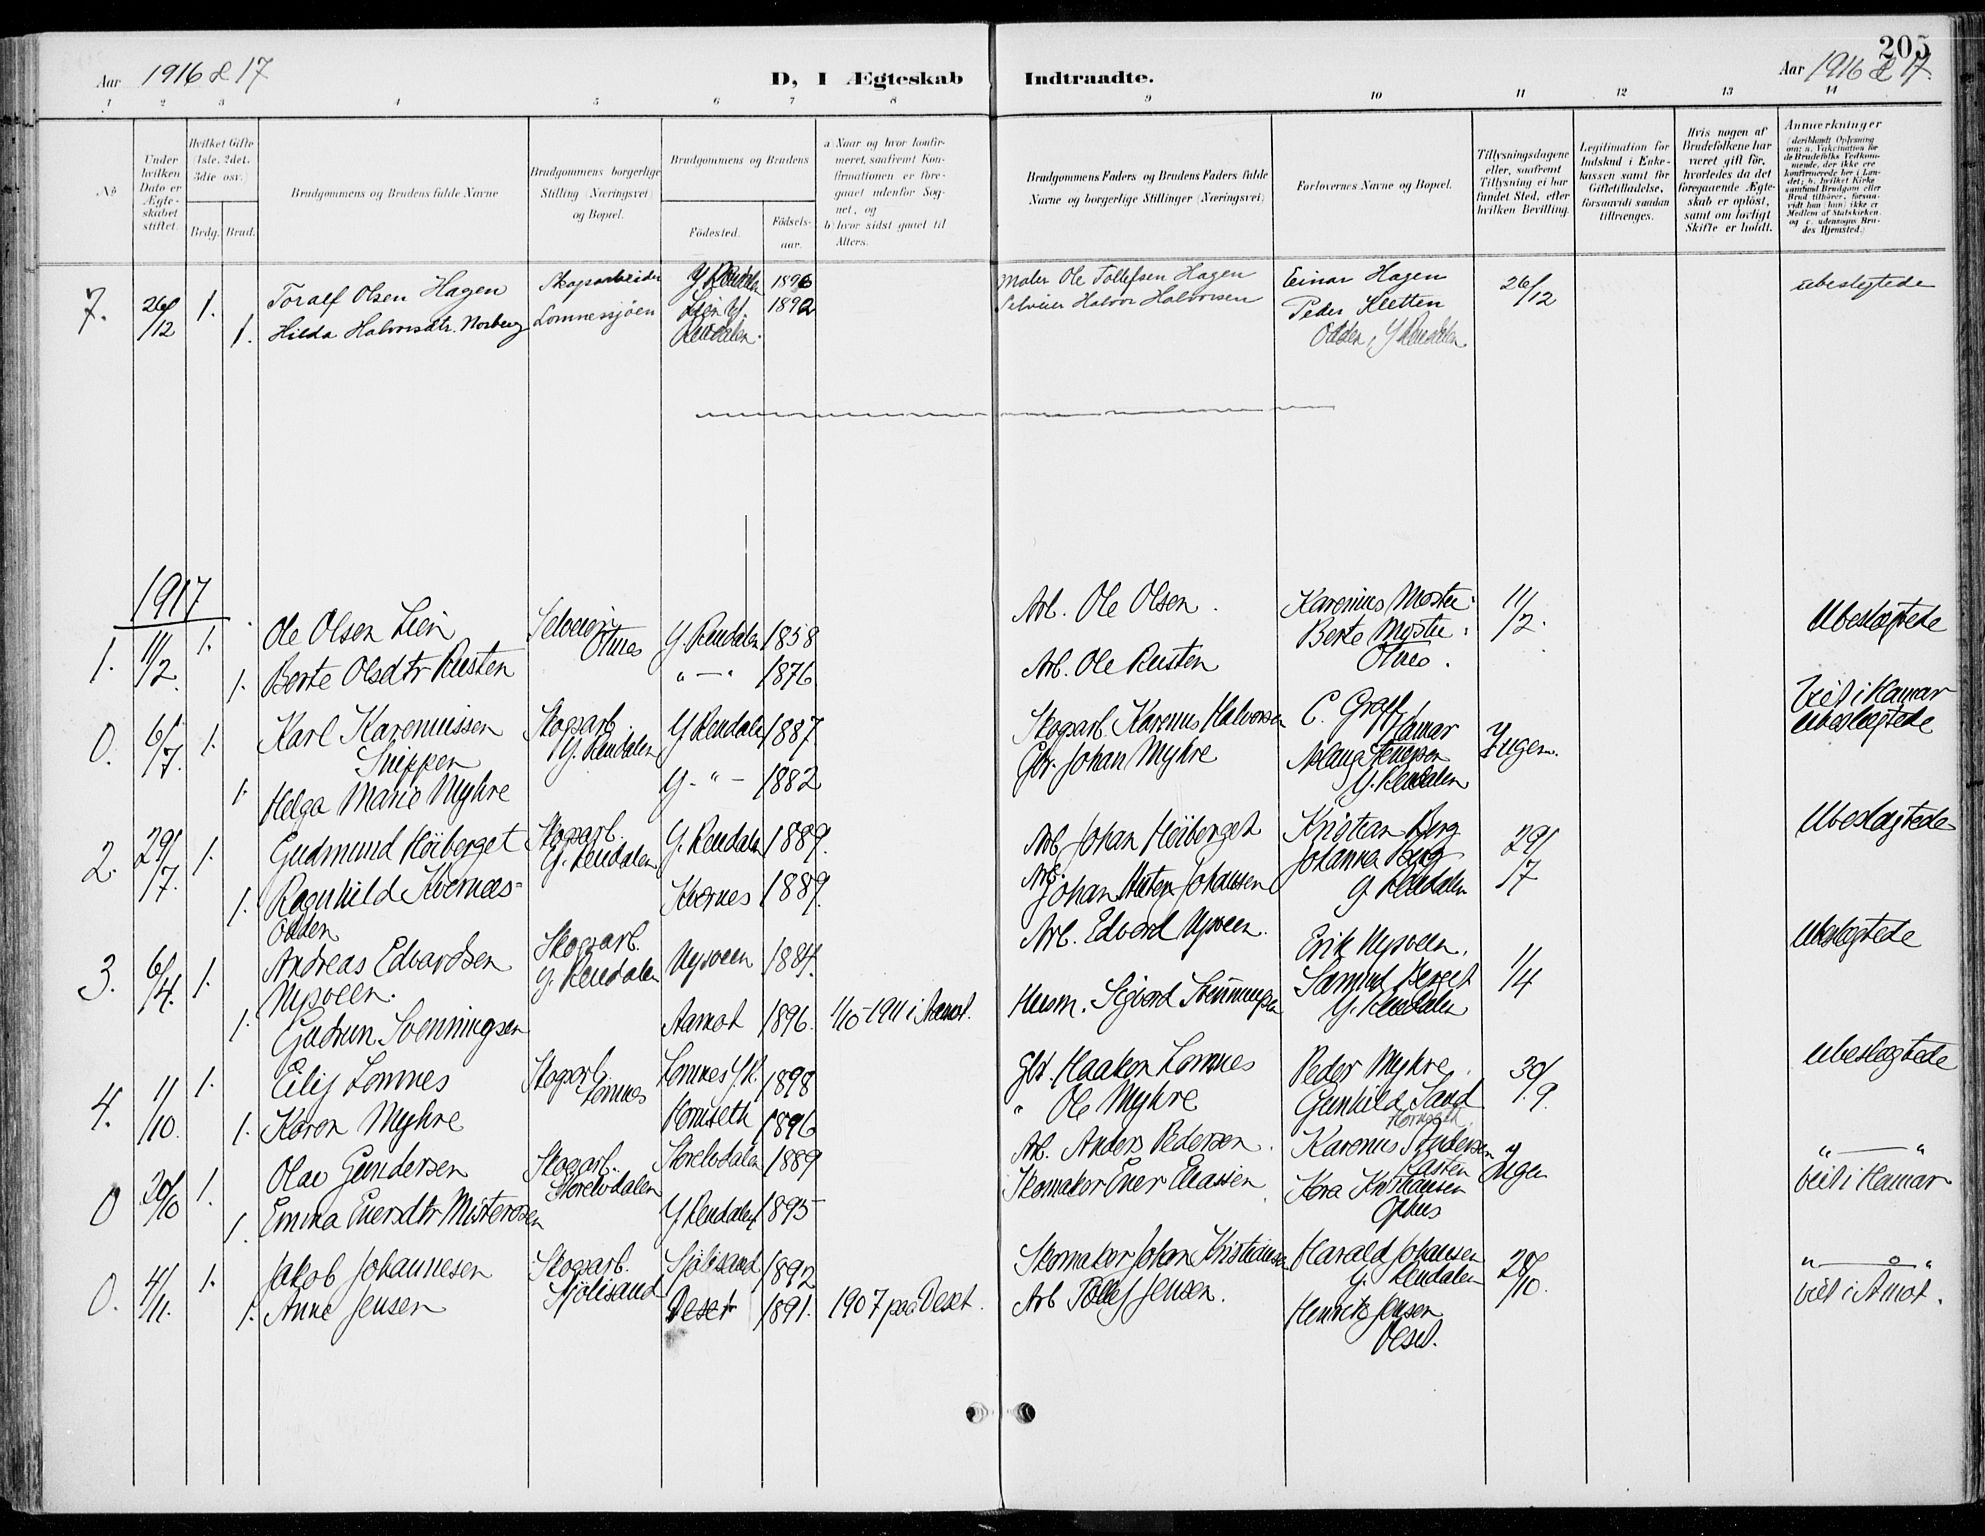 205
Aar 1916 & 17
D, I Ægteskab Indtraadte.
Aar 1916 & 17.
1 2 3 4 5 6 7 8 9 10 11 12 13 14
No
Under hvilken Dato er Ægteskabet stiftet.
Hvilket Gifte (1ste, 2det, 3die osv.)
Brdg. Brud.
Brudgommens og Brudens fulde Navne
Brudgommens borgerlige Stilling (Næringsvei) og Bopæl.
Brudgommens og Brudens
Fødested. Fødselsaar.
a) Naar og hvor konfirmeret, saafremt Konfirmationen er foregaaet udenfor Sognet, og
b) hvor sidst gaaet til Alters.
Brudgommens Faders og Brudens Faders fulde Navne og borgerlige Stillinger (Næringsvei)
Forlovernes Navne og Bopæl.
Tillysningsdagene eller, saafremt Tillysning ei har fundet Sted, efter hvilken Bevilling.
Legitimation for Indskud i Enkekassen samt for Giftetilladelse, forsaavidt saadan tiltrænges.
Hvis nogen af Brudefolkene har været gift før, hvorledes da det foregaaende Ægteskab er opløst, samt om lovligt Skifte er holdt.
Anmerkninger
(deriblandt Oplysning om: a. Vakcination for de Brudefolks Vedkommende, der ikke ere konfirmerede her i Landet; b. hvilket Kirkesamfund Brudgom eller Brud tilhører, forsaavidt han (hun) ikke er Medlem af Statskirken, og c. udensogns Brudes Hjemsted.)
7. 26/12 1. Toralf Olsen Hagen Skogsarbeider Y. Rendalen 1896 Maler Ole Tollefsen Hagen Einar Hagen 26/12 ubeslegtede
1. Hilda Halvorsdtr. Norberg Lomnessjøen Lien Y. Rendalen. 1892 Selveier Halvor Halvorsen Peder Kletten
Odden, Y Rendalen.
1917
1. 11/2. 1. Ole Olsen Lien Selveier Otnes Y. Rendalen 1858 Arb. Ole Olsen. Karenius Mostu 11/2. Ubeslægtede
1. Berte Olsdtr Rusten " — " 1876 Arb. Ole Rusten Berte Mostu
Otnes.
0. 6/7. 1. Karl Kareniussen Skogsarb. Y. Rendalen Y Rendalen 1887. Skogsarb. Karenus Halvorsen C. Graff Hamar Ingen. Viet i Hamar
Snippen ubeslægtede
1. Helga Marie Myhre Y. " — 1882 Gbr. Johan Myhre
Y. Rendalen
2. 29/7. 1. Gudmund Höiberget Skogsarb. Y. Rendalen Y. Rendalen 1889. Arb. Johan Höiberget Kristian Berg 29/7 Ubeslægtede
1. Ragnhild Kvernæs- Kvernes 1889. Arb. Johan Anton Johansen Johanna Berg
Odden Y. Rendalen
3. 6/4. 1. Andreas Edvardsen Skogsarb. Y. Rendalen Nysveen 1884. Arb. Edvard Nysveen. Erik Nysveen. 1/4 Ubeslægtede
Nysveen.
1. Gudrun Svenningsen Aamot 1896. 1/10-1911 i Aamot. Husm. Sigvard Svenningsen Samund Berget
Y. Rendalen
4. 1/10. 1. Eilif Lomnes Skogsarb. Lomnes Lomnes Y.R. 1898 Gbr. Haakon Lomnes Peder Myhre 30/9. Ubeslægtede
1. Karen Myhre Hornseth 1896 " Ole Myhre Gunhild Sand
Hornseth.
0 20/10 1. Olav Gundersen Skogsarb. Storelvdalen Storelvdalen 1889 Arb. Anders Pedersen. Karenus Andersen Ingen " — "
1. Emma Enersdtr Misterosen Y Rendalen 1895 Skomaker Ener Eliassen Kora Kristiansen viet i Hamar
Ophus
0. 4/11. 1. Jakob Johannesen Skogsarb. Sjölisand Sjölisand 1892 Skomaker Johan Kristiansen Harald Johansen 28/10. " — "
Y. Rendalen
1. Anne Jensen Deset 1891. 1907 paa Deset. Arb Tollef Jensen. Henrik Jensen viet i Åmot.
Deset.